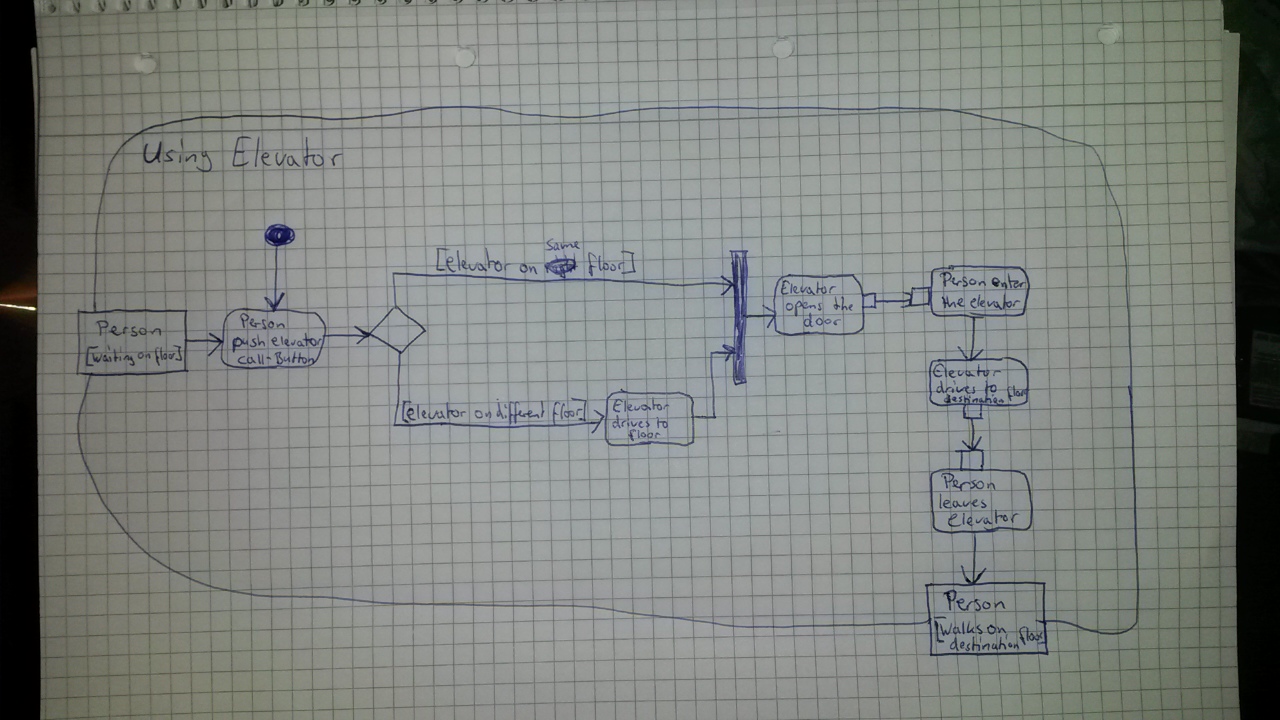 Using Elevator
Person
[waiting on floor]
Person
push elevator
call-Button
[elevator on same floor]
[elevator on different floor]
Elevator
drives to
floor
Elevator
opens the
door
Person enter
the elevator
Elevator
drives to
destination floor
Person
leaves
elevator
Person
[walks on
destination floor]